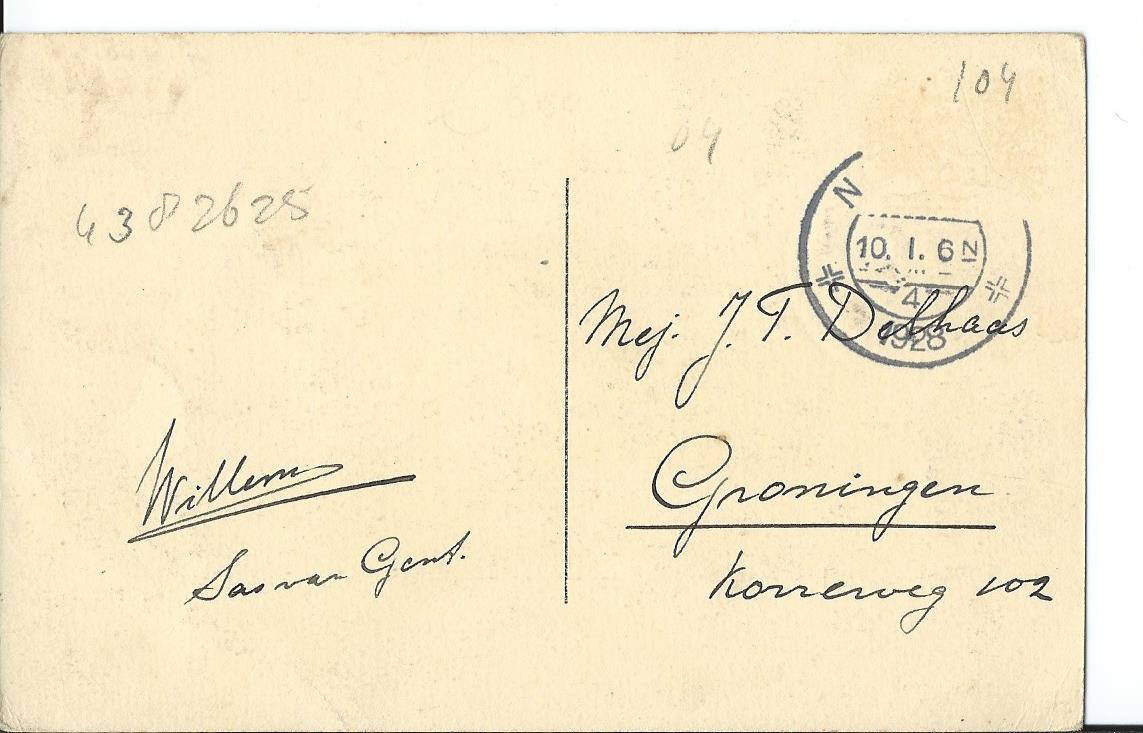 104
04
4382625
N
10. I. 6 N
4
1928
Mej. J. T. Delhaas
Groningen
Korreweg 102
Willem
Sas van Gent.